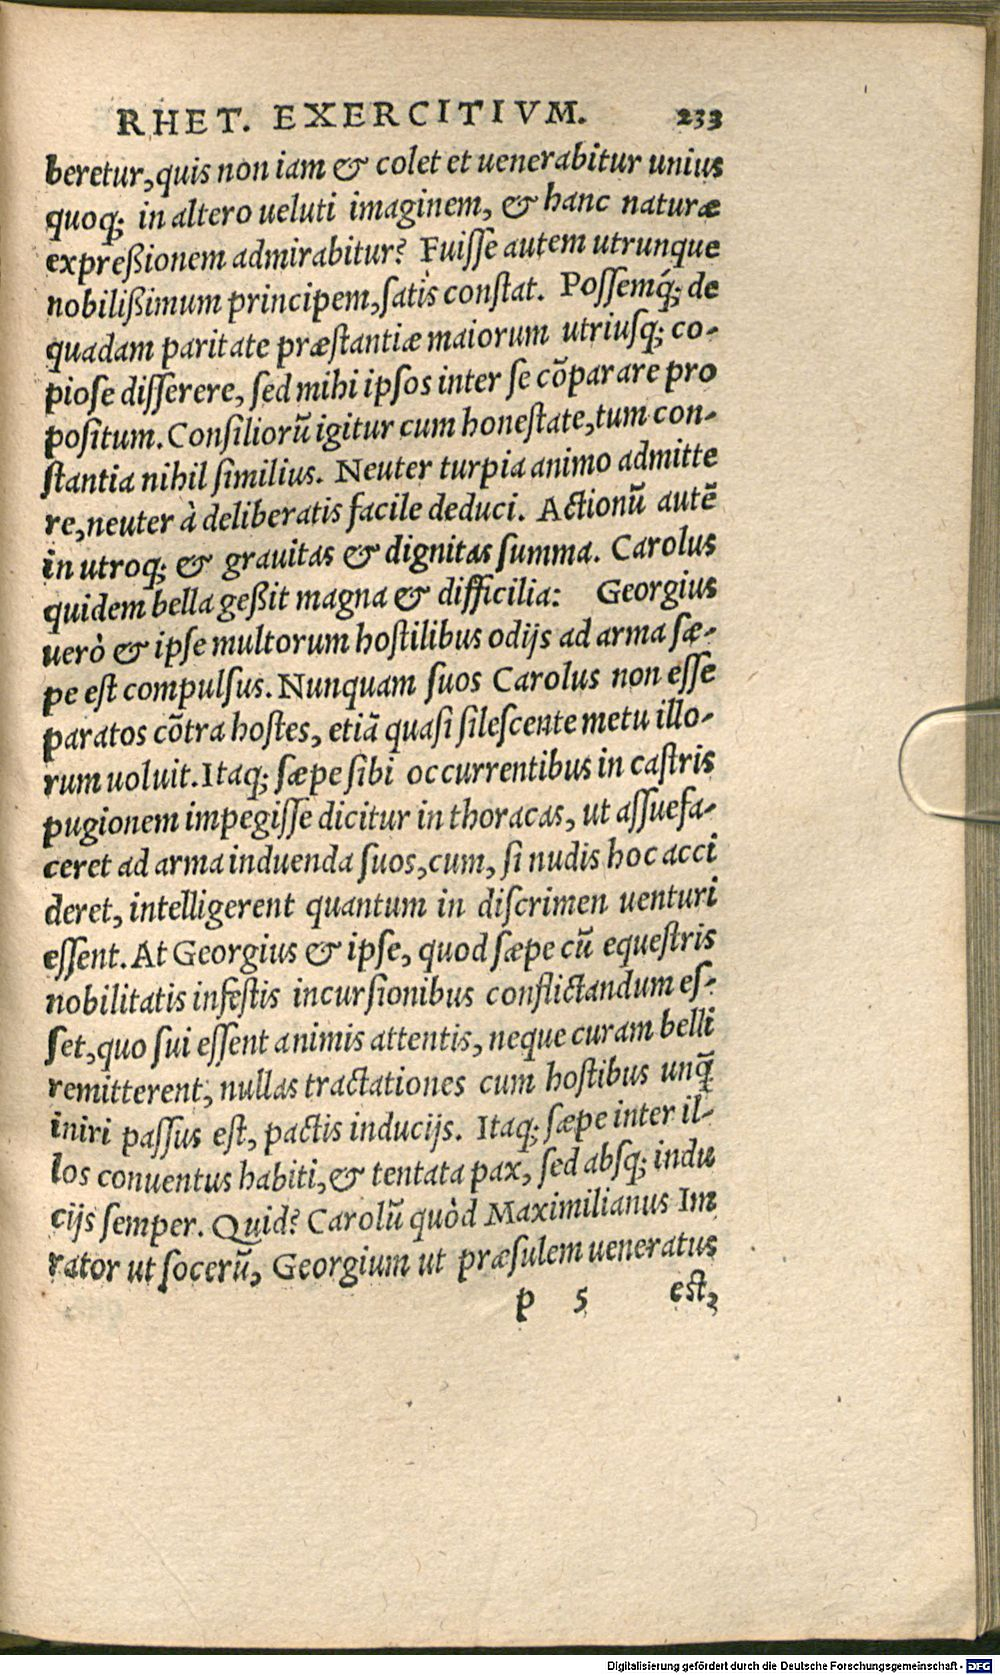 RHET. EXERCITIVM. 233
beretur, quis non iam & colet et uenerabitur unius
quoq; in altero ueluti imaginem, & hanc naturæ
expreßionem admirabitur? Fuiſſe autem utrunque
nobilißimum principem, ſatis conſtat. Poſſemq́; de
quadam paritate præſtantiæ maiorum utriuſq; co-
pioſe diſſerere, ſed mihi ipſos inter ſe cõparare pro
poſitum. Conſiliorũ igitur cum honeſtate, tum con-
ſtantia nihil ſimilius. Neuter turpia animo admitte
re, neuter à deliberatis facile deduci. Actionũ autẽ
in utroq; & grauitas & dignitas ſumma. Carolus
quidem bella geßit magna & difficilia: Georgius
uerò & ipſe multorum hoſtilibus odijs ad arma ſæ-
pe eſt compulſus. Nunquam ſuos Carolus non eſſe
paratos cõtra hoſtes, etiã quaſi ſileſcente metu illo-
rum uoluit. Itaq; ſæpe ſibi occurrentibus in caſtris
pugionem impegiſſe dicitur in thoracas, ut aſſuefa-
ceret ad arma induenda ſuos, cum, ſi nudis hoc acci
deret, intelligerent quantum in diſcrimen uenturi
eſſent. At Georgius & ipſe, quod ſæpe cũ equeſtris
nobilitatis infeſtis incurſionibus conflictandum eſ-
ſet, quo ſui eſſent animis attentis, neque curam belli
remitterent, nullas tractationes cum hoſtibus unq̃
iniri paſſus eſt, pactis inducijs. Itaq; ſæpe inter il-
los conuentus habiti, & tentata pax, ſed abſq; indu
cijs ſemper. Quid? Carolũ quòd Maximilianus Im
rator ut ſocerũ, Georgium ut præſulem ueneratus
p 5 eſt,
Digitalisierung gefördert durch die Deutsche Forschungsgemeinschaft - DFG